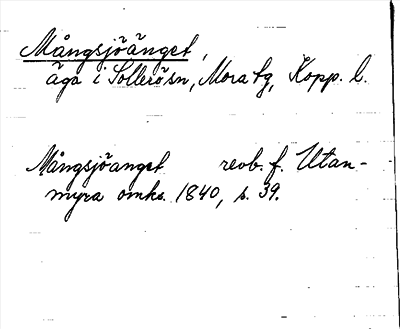 Mångsjöänget,
äga i Sollerösn, Mora tg, Kopp. l.
Mångsjöanget reob. f. Utan-
myra omkr. 1840, s. 39.